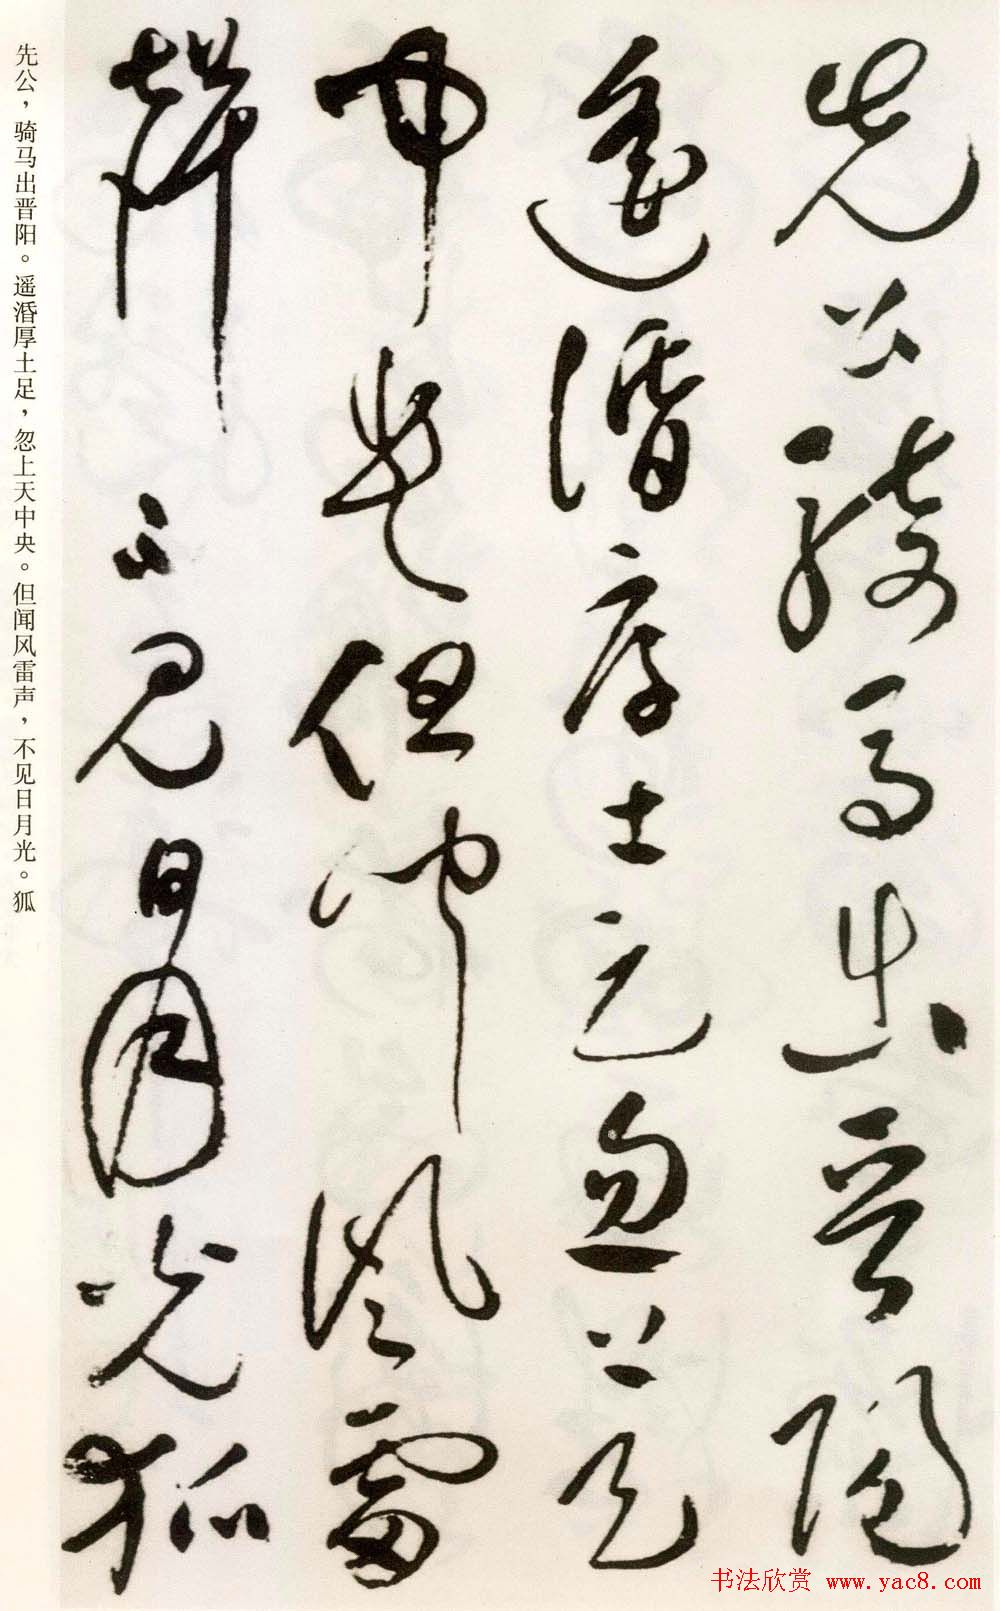 先公騎馬出晋陽
遥涽厚土足忽上天
中央但聞風雷
聲不見日月光狐
先公，骑马出晋阳。遥涽厚土足，忽上天中央。但闻风雷声，不见日月光。狐
书法欣赏 www.yac8.com